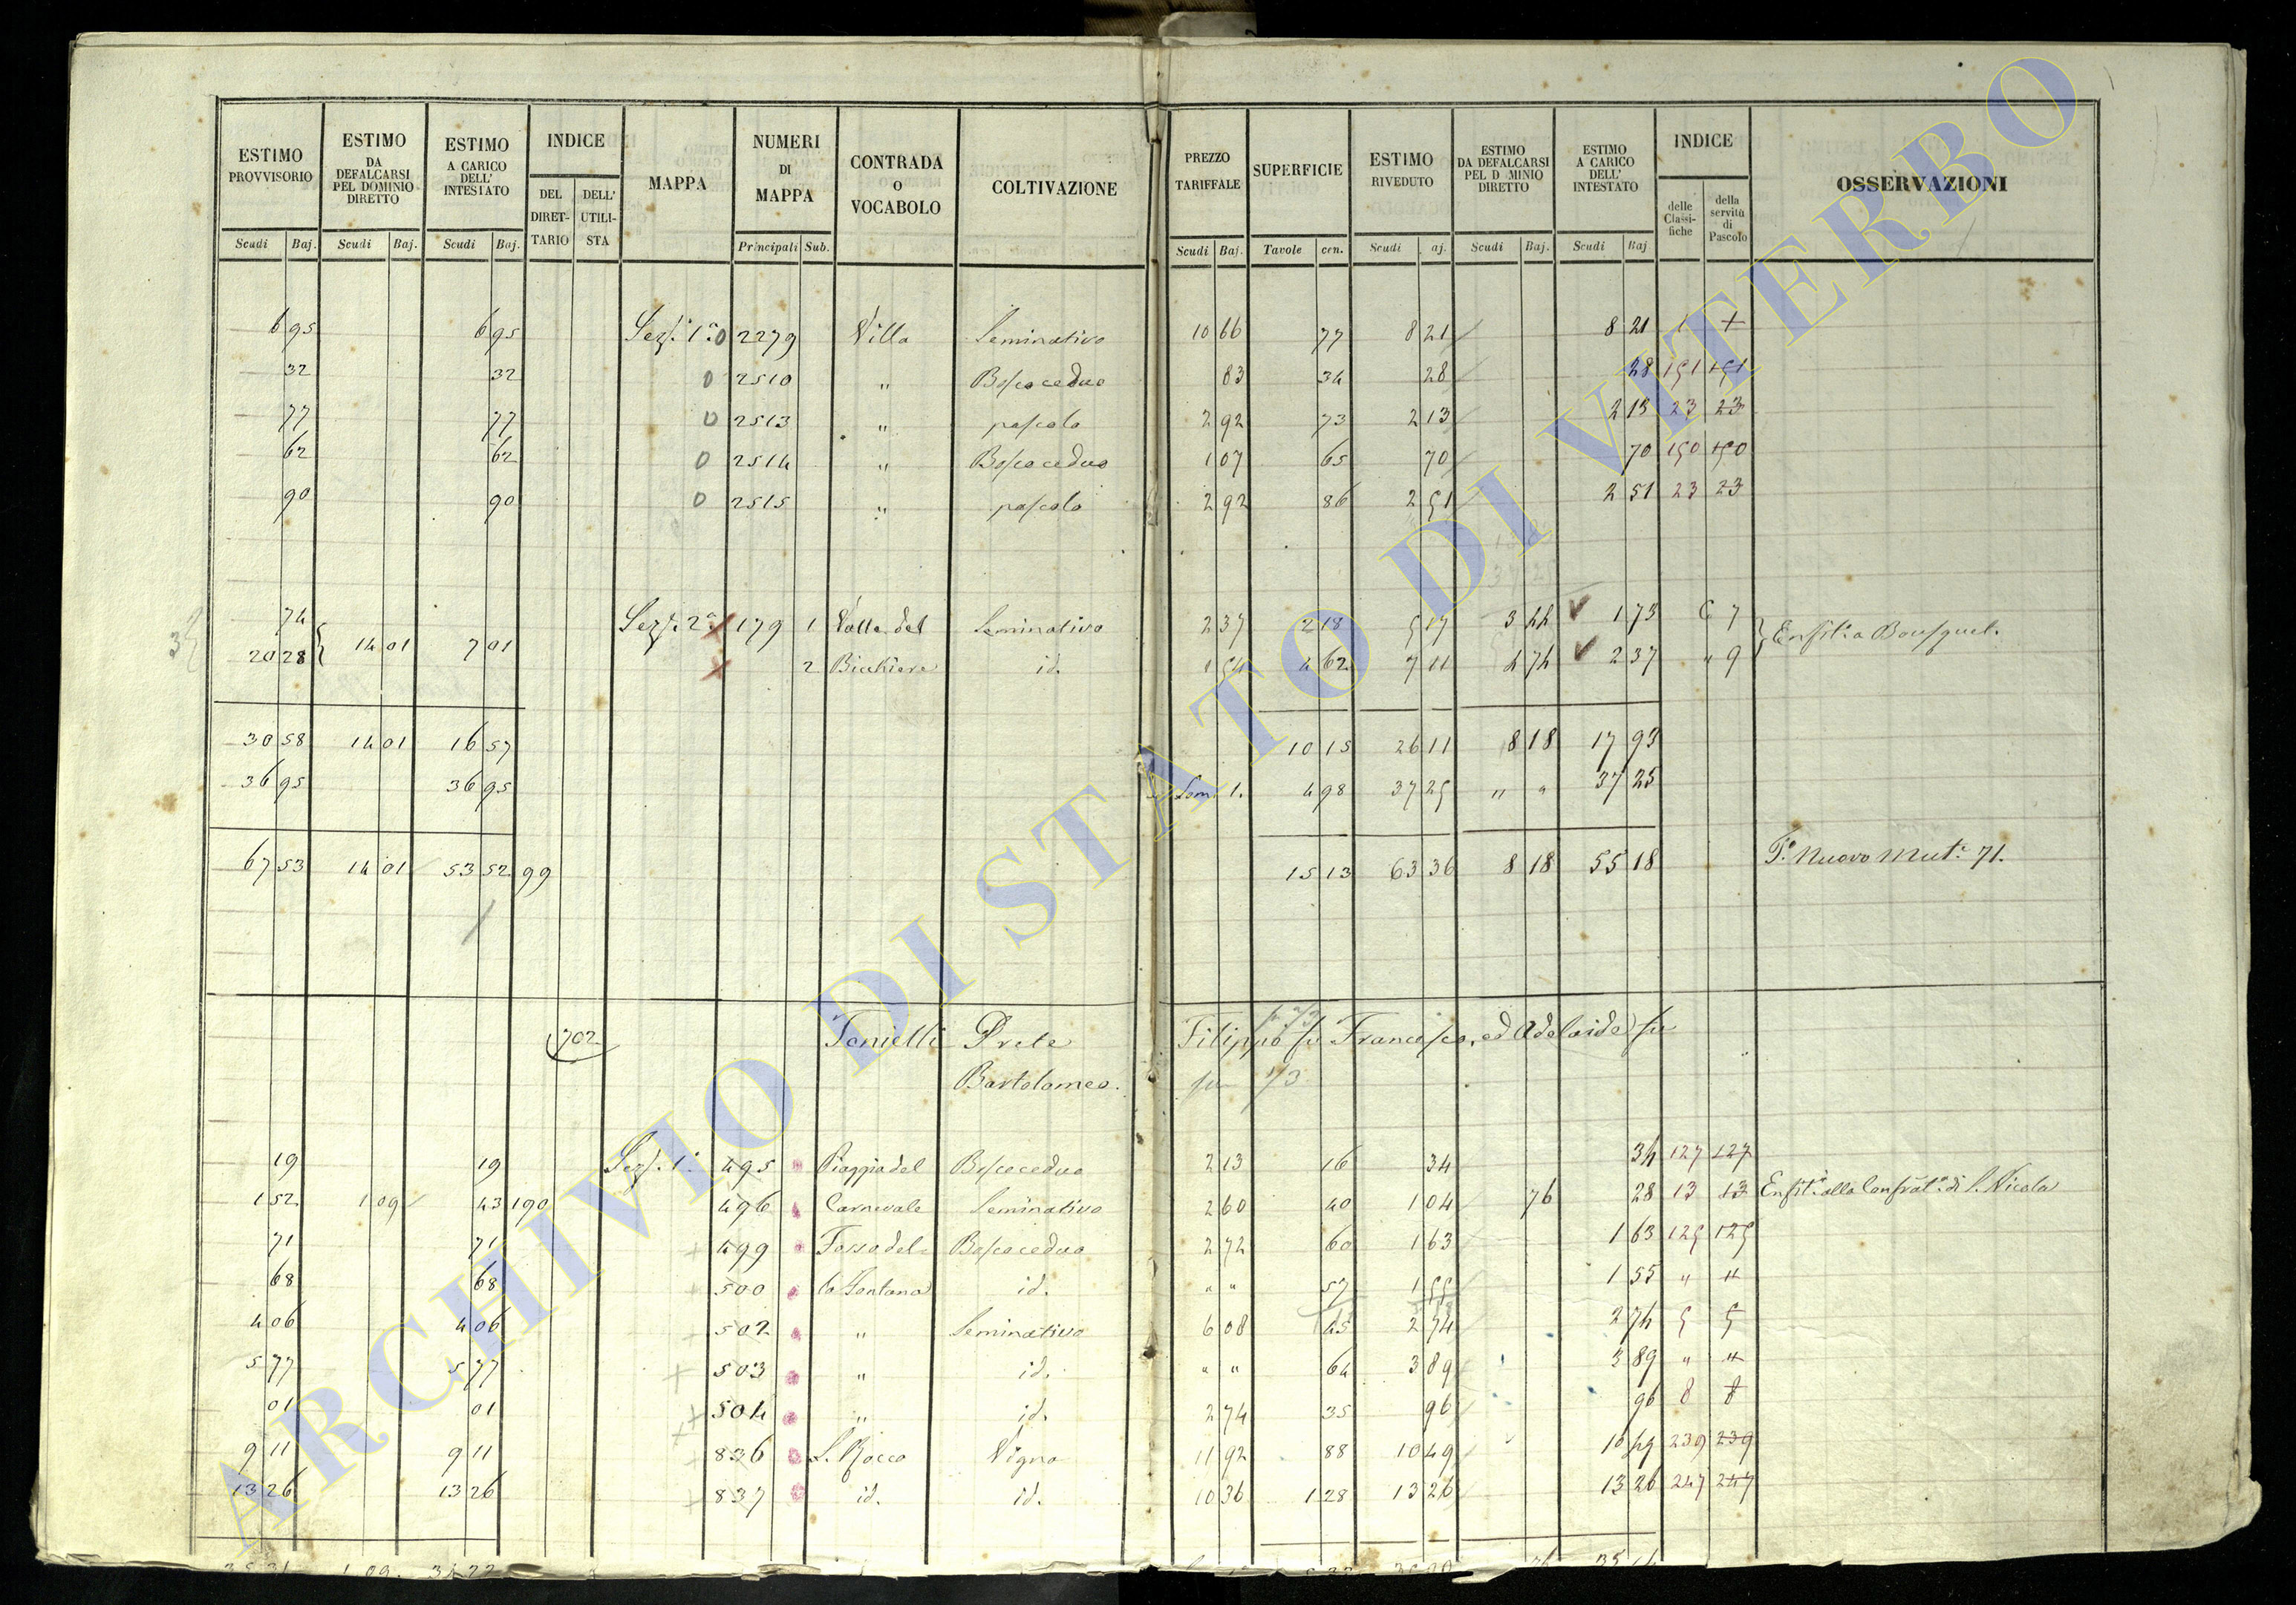 ESTIMO PROVVISORIO | ESTIMO DA DEFALCARSI PEL DOMINIO DIRETTO | ESTIMO A CARICO DELL' INTESTATO | INDICE | MAPPA | NUMERI DI MAPPA | CONTRADA O VOCABOLO | COLTIVAZIONE | PREZZO TARIFFALE | SUPERFICIE | ESTIMO RIVEDUTO | ESTIMO DA DEFALCARSI PEL D MINIO DIRETTO | ESTIMO A CARICO DELL' INTESTATO | INDICE | OSSERVAZIONI
DEL DIRET- TARIO | DELL' UTILI- STA | delle Classi- fiche | della servitù di Pascolo
Scudi | Baj. | Scudi | Baj. | Scudi | Baj. | Principali | Sub. | Scudi | Baj. | Tavole | cen. | Scudi | aj. | Scudi | Baj. | Scudi | Baj
6 95 | 6 95 | Sez. 1a 0 | 2279 | Villa | Seminativo | 10 66 | 77 | 8 21 | 8 21 | 1 | +
32 | 32 | 0 | 2510 | " | Bosco ceduo | 83 | 34 | 28 | 28 | 151 | 151
77 | 77 | 0 | 2513 | " | pascolo | 2 92 | 73 | 2 13 | 2 13 | 23 | 23
62 | 62 | 0 | 2514 | " | Bosco ceduo | 1 07 | 65 | 70 | 70 | 150 | 150
90 | 90 | 0 | 2515 | " | pascolo | 2 92 | 86 | 2 51 | 2 51 | 23 | 23
74 | Sez. 2a | 179 | 1 | Valle del | Seminativo | 2 37 | 2 18 | 5 17 | 3 44 | 1 73 | 7
20 28 | 14 01 | 7 01 | 2 | Bicchiere | id. | 1 54 | 4 62 | 7 11 | 4 74 | 2 37 | " 9 | Enfit.a Bousquet.
30 58 | 14 01 | 16 57 | 10 15 | 26 11 | 8 18 | 17 93
36 95 | 36 95 | 1. | 4 98 | 37 25 | " " | 37 25
67 53 | 14 01 | 53 52 | 99 | 15 13 | 63 36 | 8 18 | 55 18 | Nuovo Mut. 71.
702 | Tonielli Prete Filippo fu Francesco, ed Adelaide fu
Bartolomeo. 1/3
19 | 19 | Sez. 1a | 495 | Piaggia del | Bosco ceduo | 2 13 | 16 | 34 | 34 | 127 | 127
1 52 | 1 09 | 43 | 190 | 496 | Carnevale | Seminativo | 2 60 | 40 | 1 04 | 76 | 28 | 13 | 13 | Enfit.a alla Confrat.a di S. Nicola
71 | 71 | 499 | Fosso del- | Bosco ceduo | 2 72 | 60 | 1 63 | 1 63 | 125 | 125
68 | 68 | 500 | la Fontana | id. | " " | 57 | 1 55 | 1 55 | " | "
4 06 | 4 06 | 502 | " | Seminativo | 6 08 | 45 | 2 74 | 2 74 | 5 | 5
5 77 | 5 77 | 503 | " | id. | " " | 64 | 3 89 | 3 89 | " | "
01 | 01 | 504 | " | id. | 2 74 | 35 | 96 | 96 | 8 | 8
9 11 | 9 11 | 836 | S. Rocco | Vigna | 11 92 | 88 | 10 49 | 10 49 | 239 | 239
13 26 | 13 26 | 837 | id. | id. | 10 36 | 1 28 | 13 26 | 13 26 | 247 | 247
ARCHIVIO DI STATO DI VITERBO